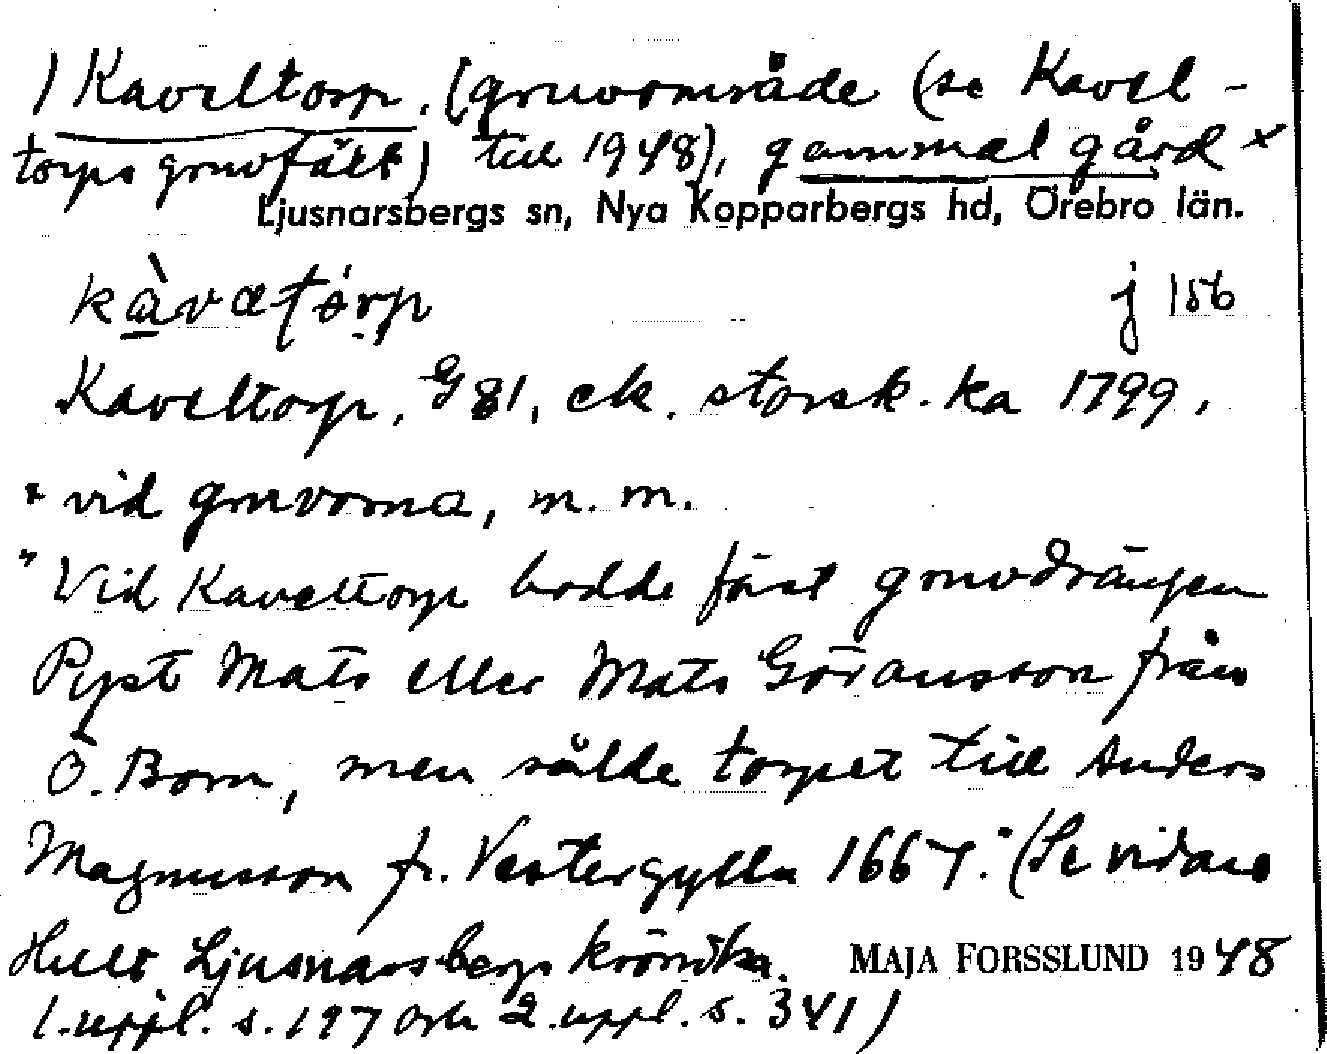 1) Kaveltorp. (gruvområde (se Kavel-
torps gruvfält) till 1948), gammal gård x
Ljusnarsbergs sn, Nya Kopparbergs hd, Örebro län.
kàvætórp j 156
Kaveltorp, G 81, ek. storsk. ka 1799.
x vid gruvorna, m. m.
"Vid Kaveltorp bodde först gruvdrängen
Pyst Mats eller Mats Göransson från
Ö. Born, men sålde torpet till Anders
Magnusson fr. Vestergylln 1667." (Se vidare
Hults Ljusnarsbergs krönika.
MAJA FORSSLUND 1948
1. uppl. s. 197 och 2. uppl. s. 341)